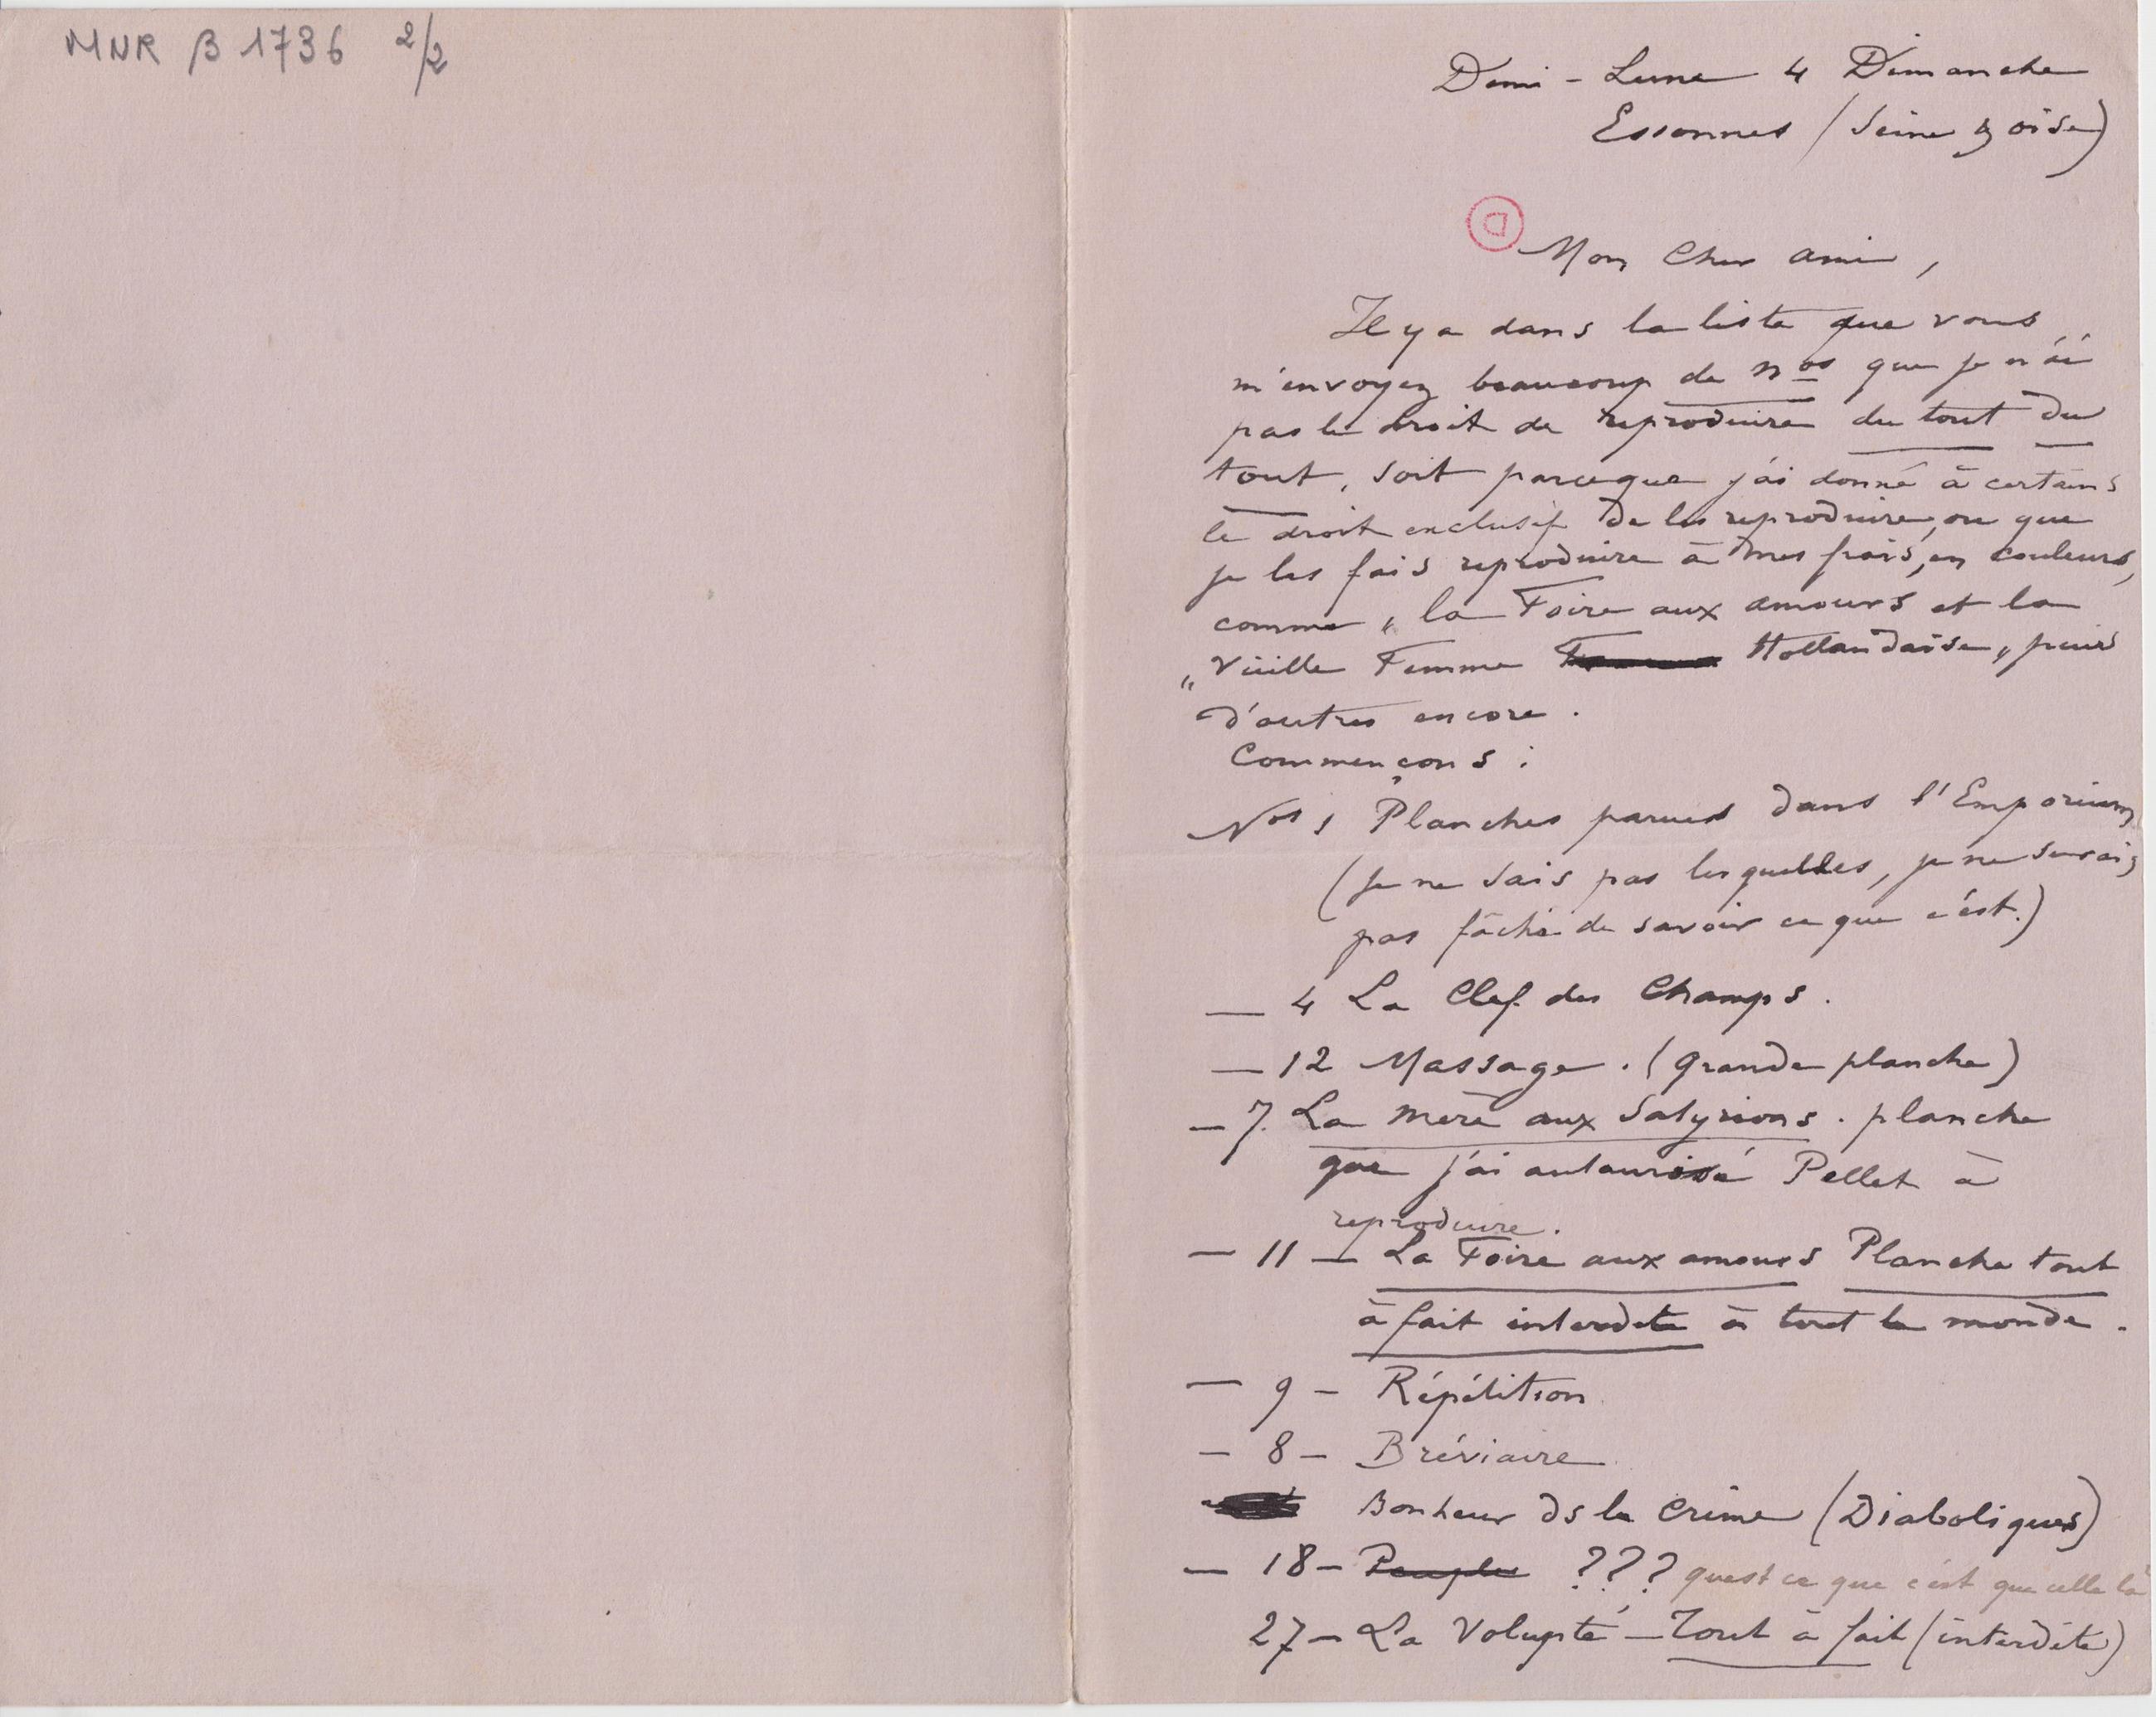 MNR B 1736 2/2
Demi-Lune 4 Dimanche
Essonnes (Seine & oise)
D
Mon Cher ami,
Il y a dans la liste que vous
m'envoyez beaucoup de nos que je n'ai
pas le droit de reproduire du tout du
tout, soit parceque j'ai donné à certains
le droit exclusif de les reproduire, ou que
je les fais reproduire à mes frais, en couleurs,
comme „ la Foire aux amours et la
„ Vieille Femme Hollandaise „ puis
d'autres encore.
Commençons :
Nos 1 Planches parues dans l'Emporium
(je ne sais pas lesquelles, je ne serais
pas fâché de savoir ce que c'est.)
— 4 La Clef des Champs.
— 12 Massage. (Grande planche)
— 7. La mère aux Satyrions. planche
que j'ai autaurisé Pellet à
reproduire.
— 11 — La Foire aux amours Planche tout
à fait interdite à tout le monde.
— 9 — Répétition
— 8 — Bréviaire
Bonheur ds le Crime (Diaboliques)
— 18 — Peuples ??? quest ce que c'est que celle là
27 — La Volupté — Tout à fait (interdite)